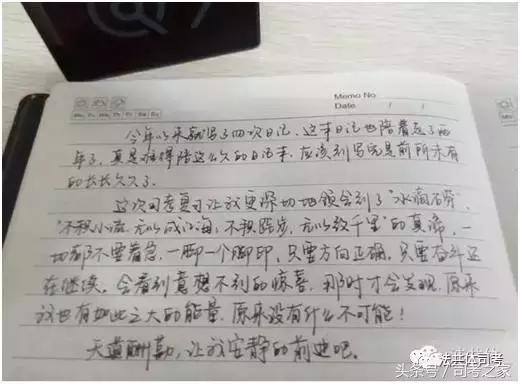 Memo No.
Date / /
Mo Tu We Th Fr Sa Su
今年以来就写了四次日记，这本日记也陪着走了两
年了，真是难得陪这么久的日记本，应该到写完是前所未有
的长长久久了。
这次司考复习让我更深切地领会到了"水滴石穿"，
"不积小流，无以成江海，不积跬步，无以致千里"的真谛，一
切都不要着急，一脚一个脚印，只要方向正确，只要奋斗还
在继续，会看到意想不到的惊喜，那时才会发现，原来
这也有如此之大的能量，原来没有什么不可能！
天道酬勤，让我安静的前进吧。
法共体司考
头条号／司考之家